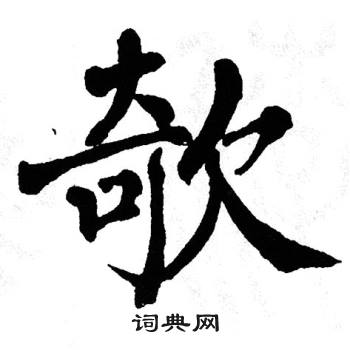 欹
词典网